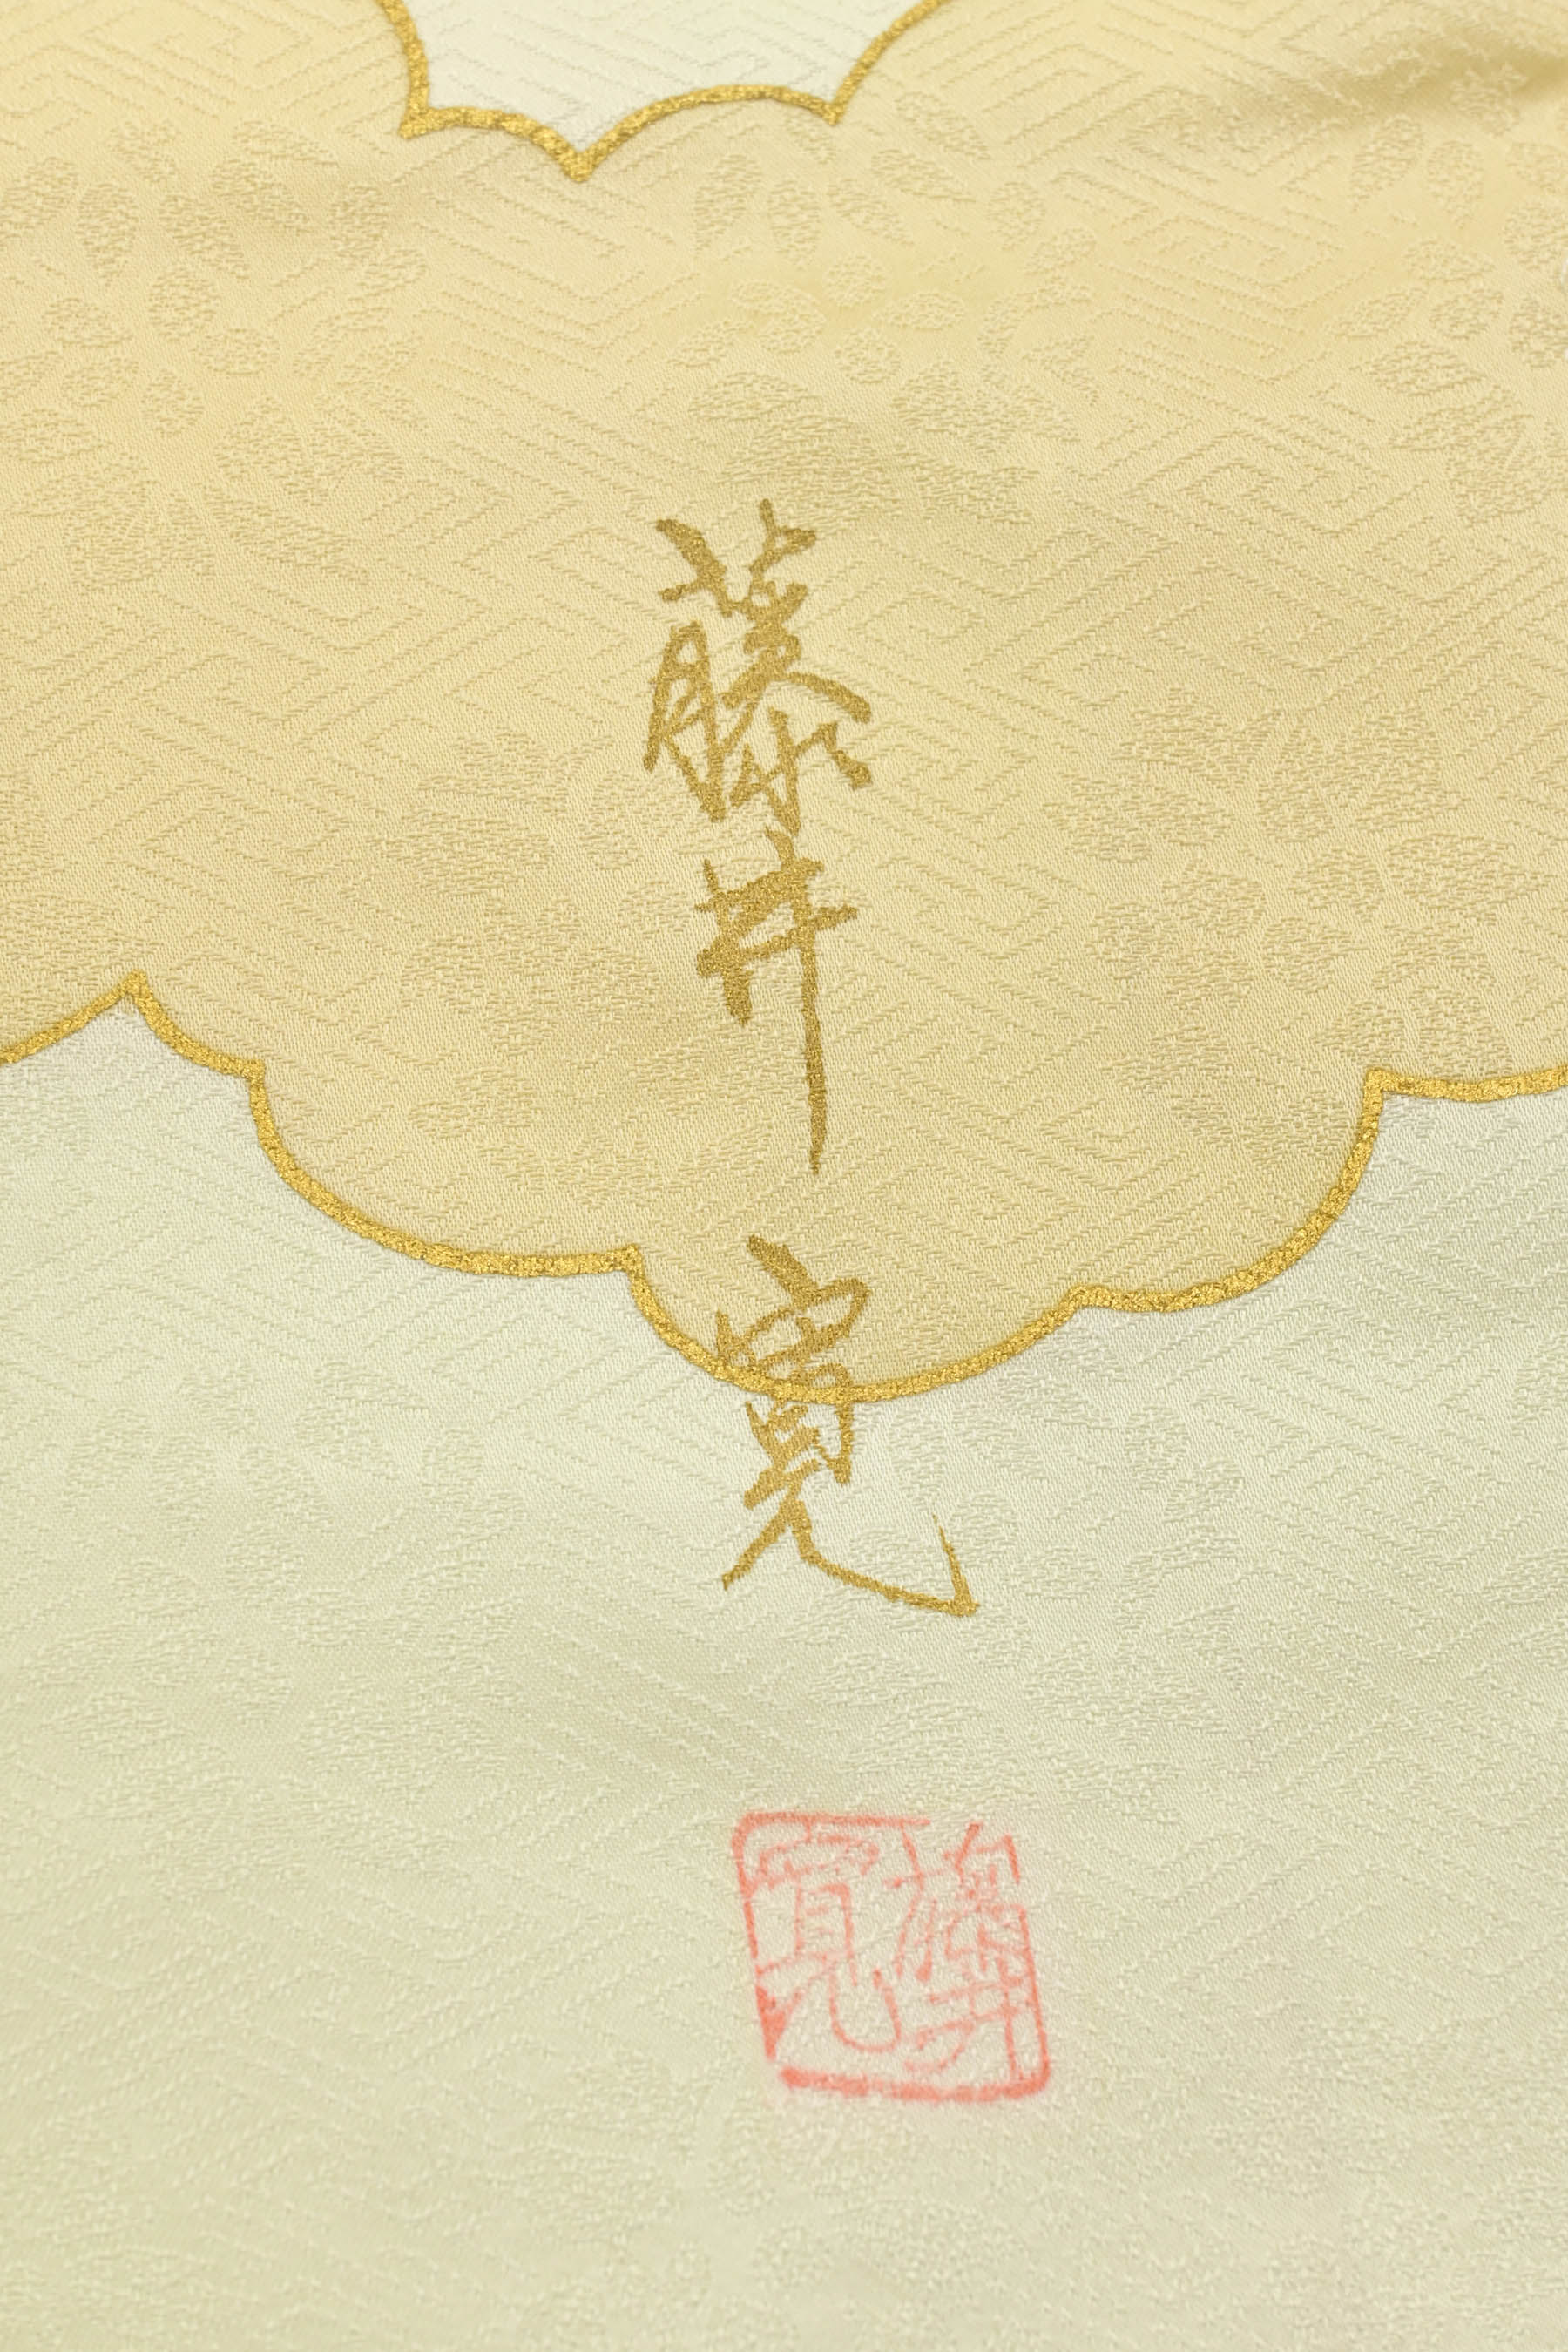 藤井
寛
藤井
寛